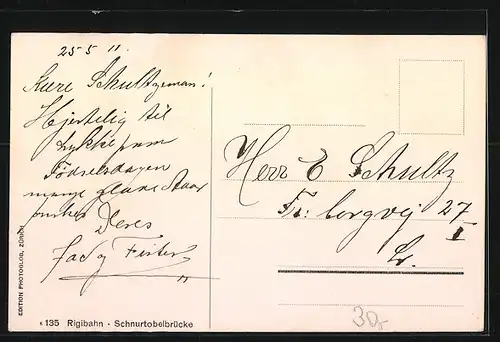 25-5 11.
Kære Schultzeman!
Hjertelig til
Lykke paa
Födselsdagen
mange glade Aar
ønsker
Deres
Herr E Schultz
Fr: borgvej 27
I
30,-
EDITION PHOTOGLOB, ZÜRICH
135 Rigibahn · Schnurtobelbrücke